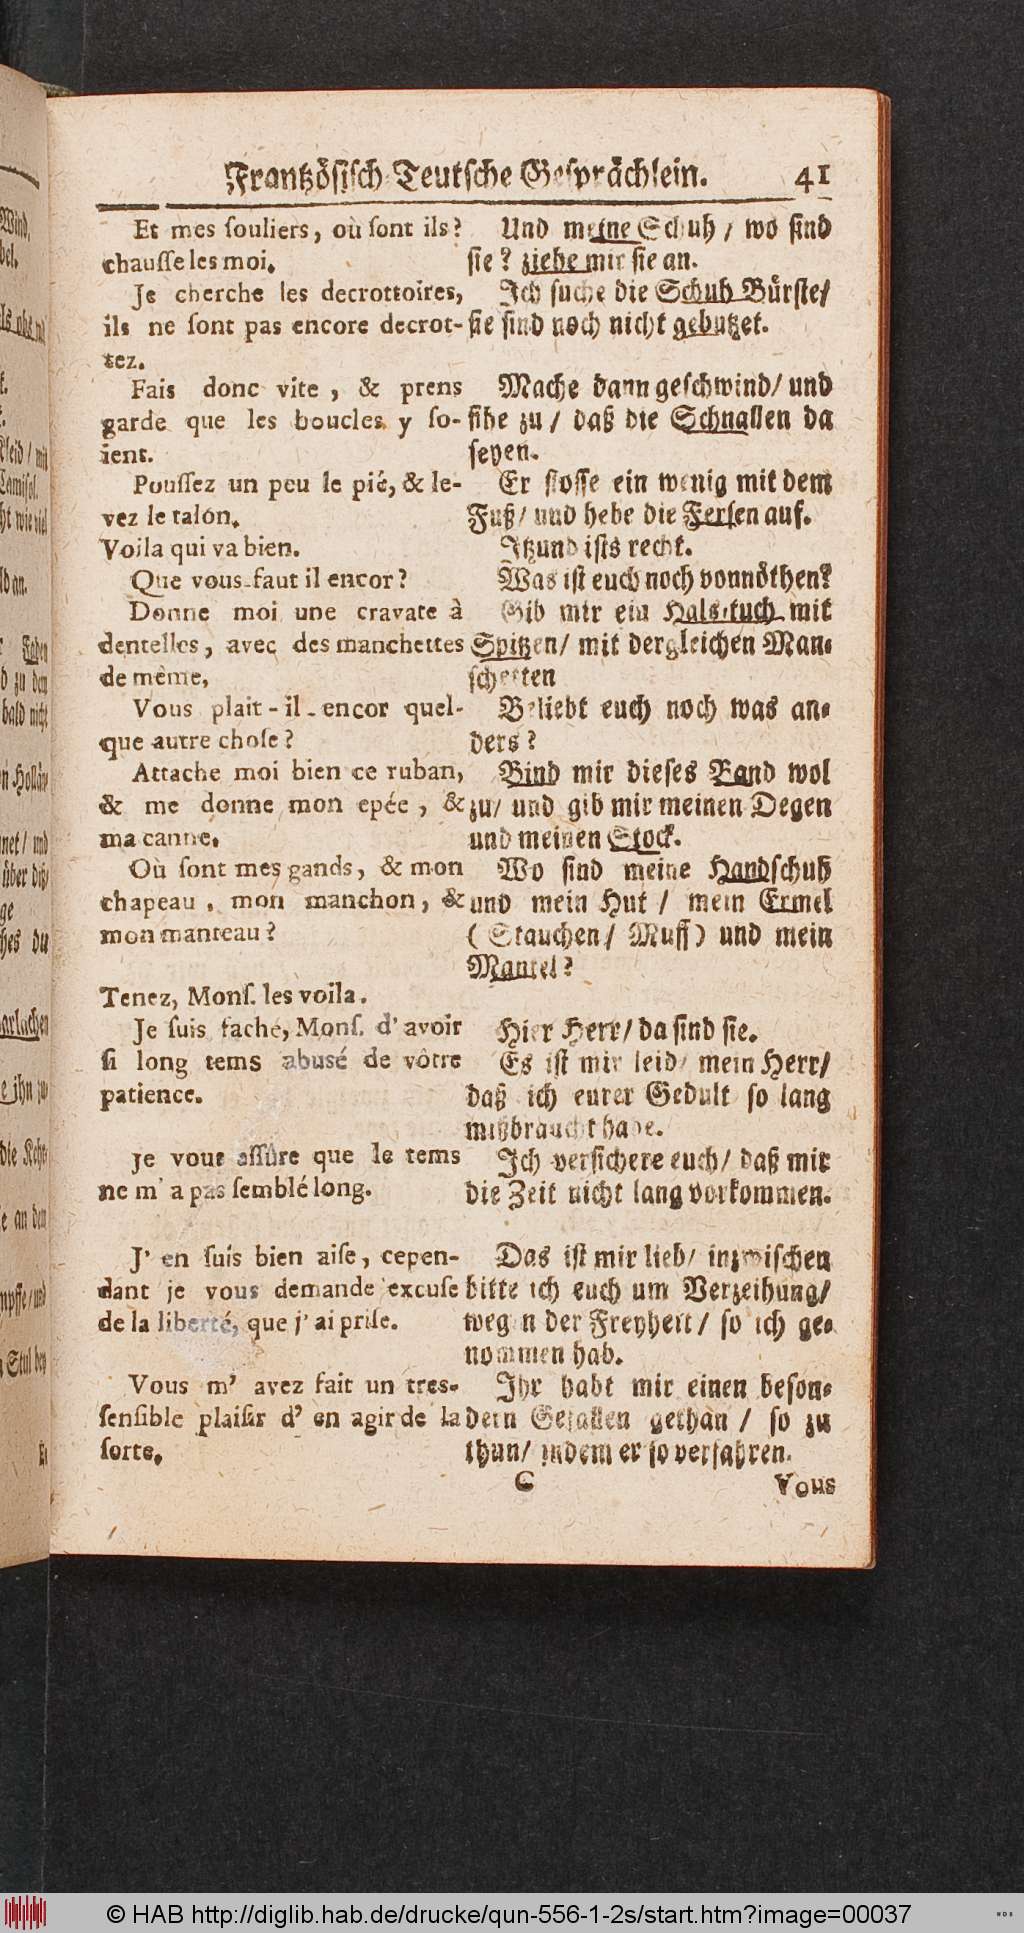 Frantzösisch-Teutsche Gesprächlein. 41
Et mes souliers, où sont ils?
chausse les moi.
Je cherche les decrottoires,
ils ne sont pas encore decrot-
tez.
Fais donc vite, & prens
garde que les boucles y so-
ient.
Poussez un peu le pié, & le-
vez le talón.
Voila qui va bien.
Que vous-faut il encor?
Donne moi une cravate à
dentelles, avec des manchettes
de mème,
Vous plait-il-encor quel-
que autre chose?
Attache moi bien ce ruban,
& me donne mon epée, &
ma canne.
Où sont mes gands, & mon
chapeau, mon manchon, &
mon manteau?
Tenez, Mons. les voila.
Je suis faché, Mons. d'avoir
si long tems abusé de vôtre
patience.
je vous assûre que le tems
ne m'a pas semblé long.
J'en suis bien aise, cepen-
dant je vous demande excuse
de la liberté, que j'ai prise.
Vous m'avez fait un tres-
sensible plaisir d'en agir de la
sorte.
Und meine Schuh / wo sind
sie? ziehe mir sie an.
Ich suche die Schuh Bürste/
sie sind noch nicht gebutzet.
Mache dann geschwind/ und
sihe zu / daß die Schnallen da
seyen.
Er stosse ein wenig mit dem
Fuß/ und hebe die Fersen auf.
Itzund ists recht.
Was ist euch noch vonnöthen?
Gib mir ein Hals-tuch mit
Spitzen/ mit dergleichen Man-
schetten
Beliebt euch noch was an-
ders?
Bind mir dieses Band wol
zu/ und gib mir meinen Degen
und meinen Stock.
Wo sind meine Handschuh
und mein Hut / mein Ermel
(Stauchen/ Muff) und mein
Mantel?
Hier Herr/ da sind sie.
Es ist mir leid/ mein Herr/
daß ich eurer Gedult so lang
mißbraucht habe.
Ich versichere euch/ daß mir
die Zeit nicht lang vorkommen.
Das ist mir lieb/ inzwischen
bitte ich euch um Verzeihung/
wegen der Freyheit / so ich ge-
nommen hab.
Ihr habt mir einen beson-
dern Gefallen gethan / so zu
thun/ indem er so verfahren.
C Vous
© HAB http://diglib.hab.de/drucke/qun-556-1-2s/start.htm?image=00037